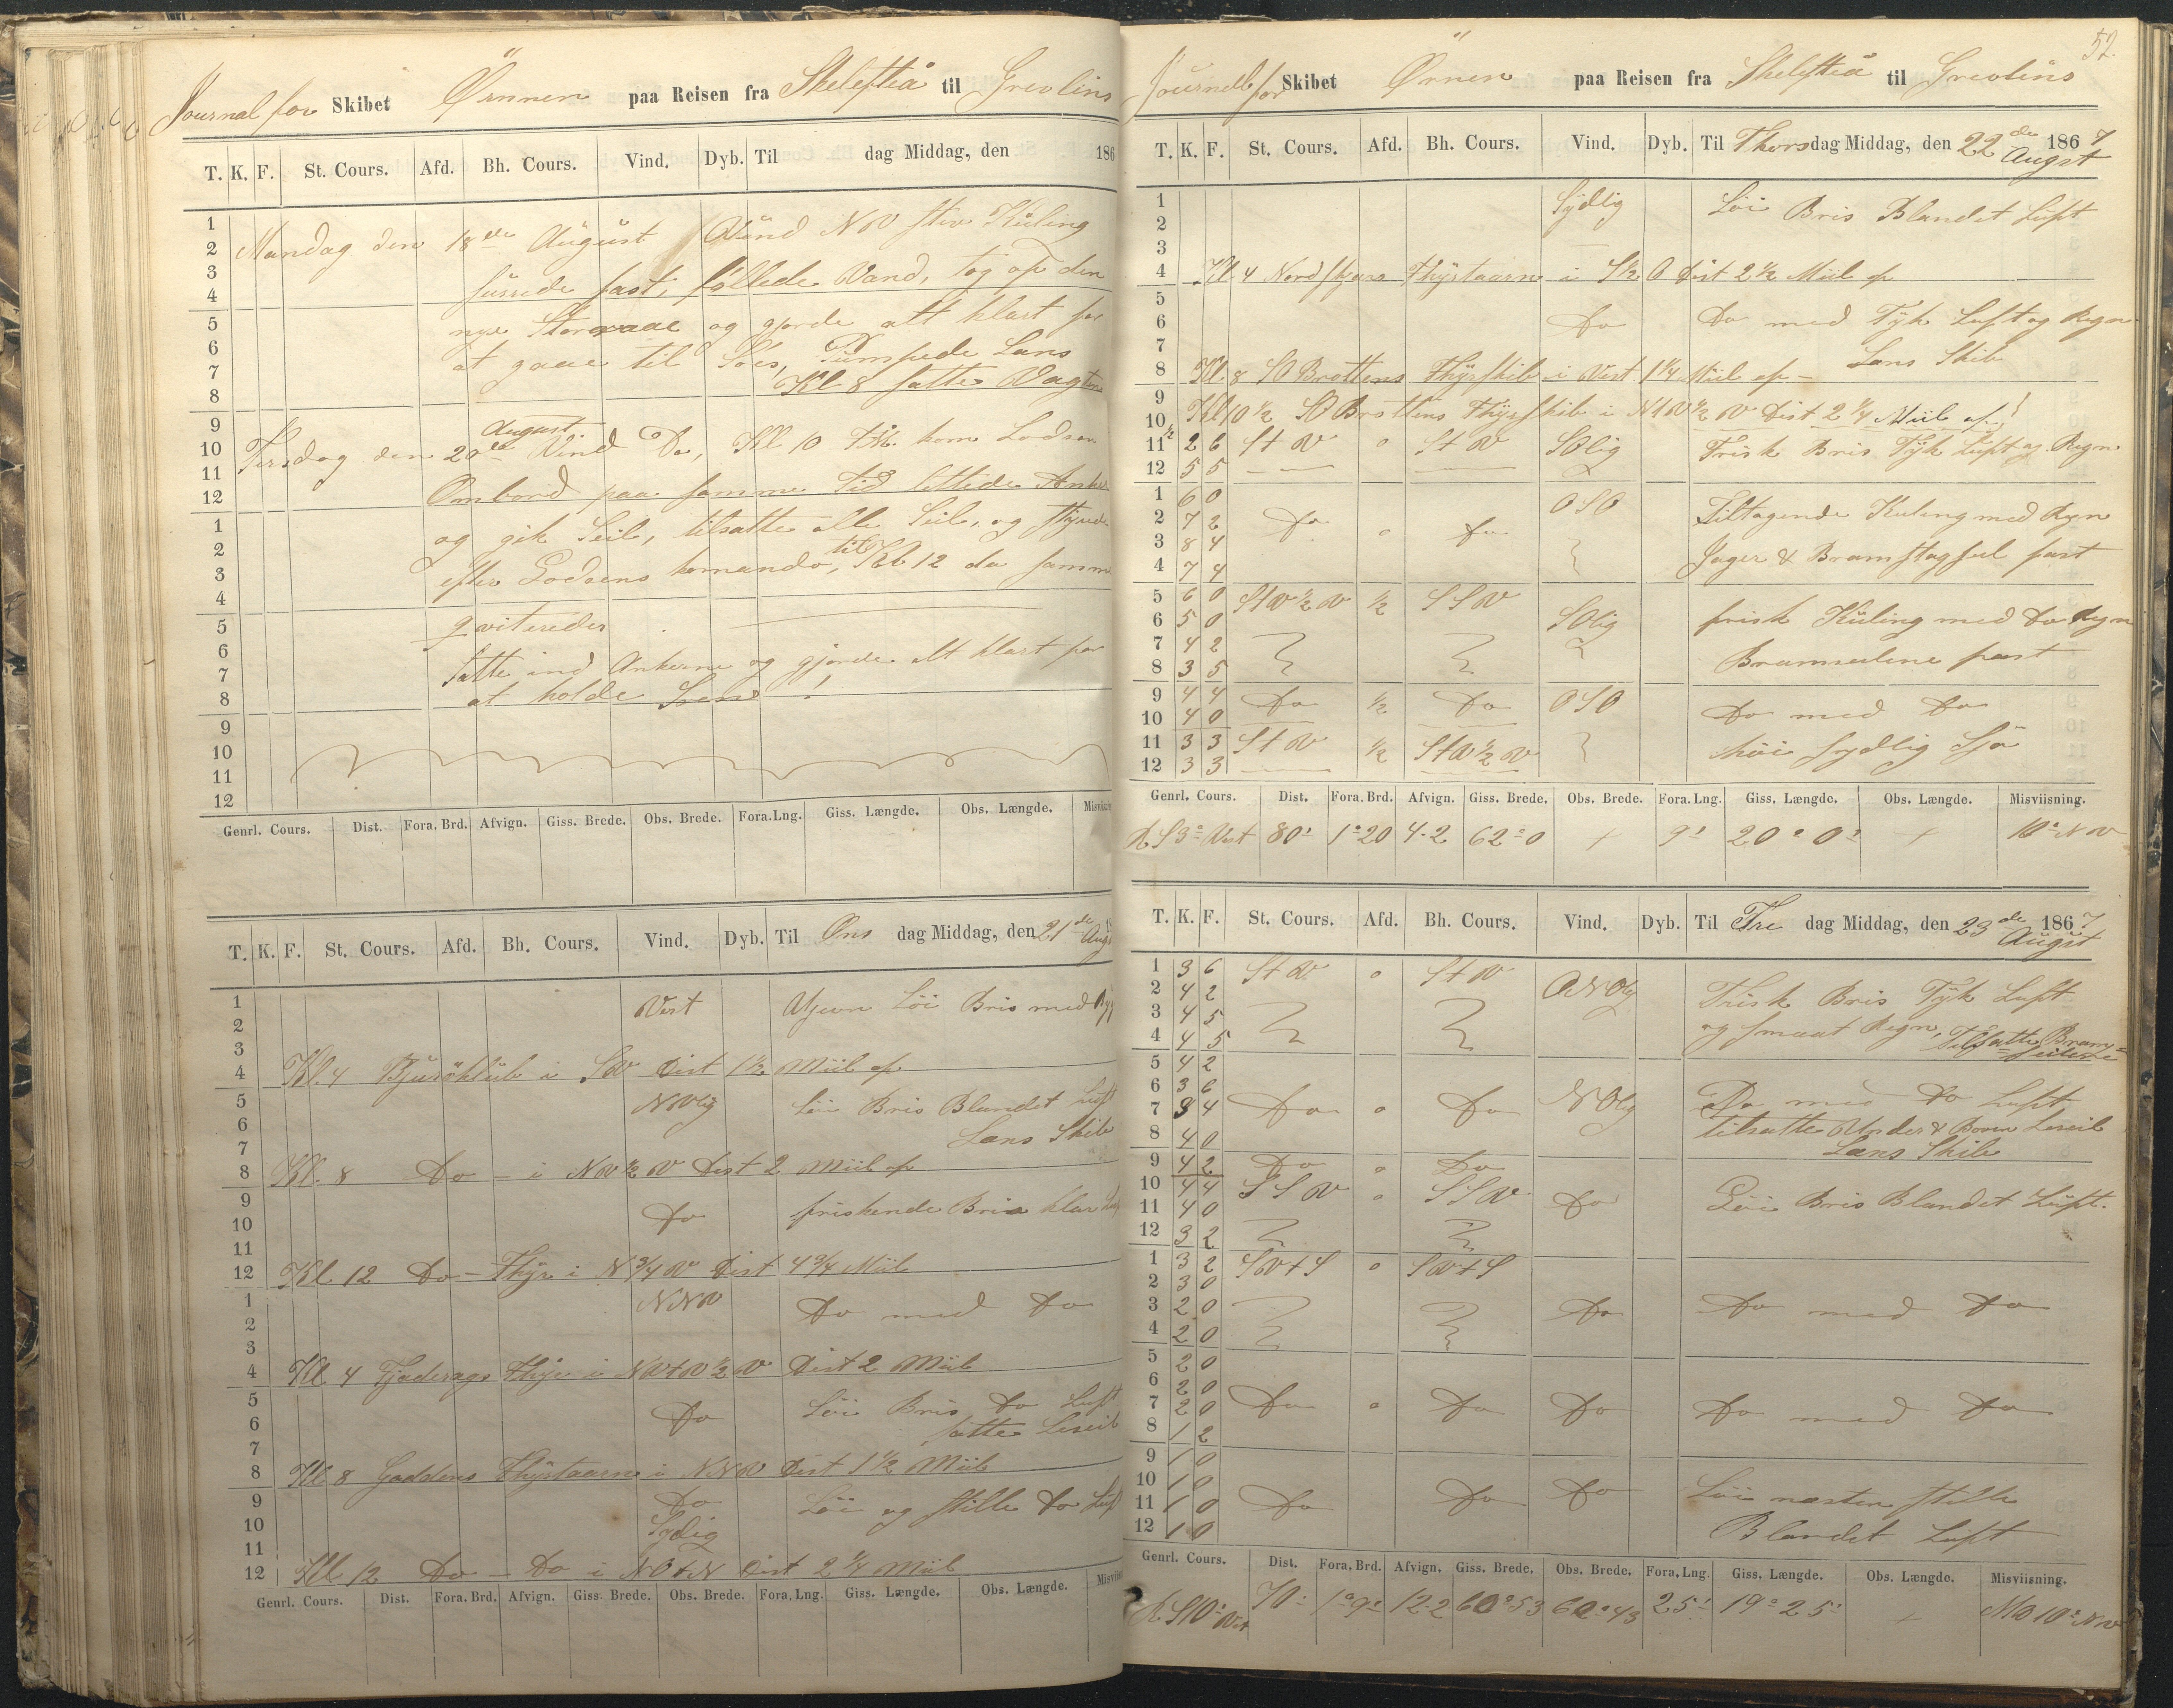 Journal for Skibet Örnnen paa Reisen fra Skelefteå til Grevlins
T. K. F. St. Cours. Afd. Bh. Cours. Vind. Dyb. Til dag Middag, den 186
1
2 Mandag den 18de August Vind NV stiv Kuling
3 surrede fast, föllede Vand, tog op den
4
5 nye Storraae og gjorde alt klart for
6 at gaae til Söes, Pumpede Læns
7 Kl 8 satte Vagten
8
9 August
10 Tirsdag den 20de Vind Do, Kl 10 FM. kom Lodsen
11
12 Ombord paa samme Tid lettede Anker
1 og gik Seil, tilsatte alle Seil, og styrede
2 efter Lodsens komando, til Kl 12 da samme
3
4
5 qviteredes
6
7 satte ind Ankerne og gjorde alt klart for
8 at holde Söen !
9
10
11
12
Genrl. Cours. Dist. Fora. Brd. Afvign. Giss. Brede. Obs. Brede. Fora. Lng. Giss. Længde. Obs. Længde. Misviisning
T. K. F. St. Cours. Afd. Bh. Cours. Vind. Dyb. Til Ons dag Middag, den 21de Aug
1 Vest Ujevn Löi Bris med
2
3
4 Kl. 4 Bjuröklub i SW Dist 1½ Miil af
5 NVlig Löi Bris Blandet Luft
6 Læns Skib
7
8 Kl. 8 Do - i NV½V Dist 2 Miil af
9 Do friskende Bris klar Luft
10
11
12 Kl 12 Do - Fhyr i N¾V Dist 4¾ Miil
1 NNV Do med Do
2
3
4 Kl 4 Fjaderags Fhyr i NVtV½V Dist 2 Miil
5 Do Löi Bris Do Luft
6 satte Leseil
7
8 Kl 8 Gaddens Fhyrtaarn i NNV Dist 1½ Miil
9 Do Löi og stille Do Luft
10 Sydlig
11
12 Kl 12 Do - Do i NOtN Dist 2¼ Miil
Genrl. Cours. Dist. Fora. Brd. Afvign. Giss. Brede. Obs. Brede. Fora. Lng. Giss. Længde. Obs. Længde. Misvi
52.
Journall for Skibet Örnen paa Reisen fra Skelefteå til Grevlins
T. K. F. St. Cours. Afd. Bh. Cours. Vind. Dyb. Til Thorsdag Middag, den 22de Augst 1867
1 Sydlig Löi Bris Blandet Luft
2
3
4 Kl. 4 Nordskjærs Fhyrtaarn i S½O Dist 2½ Miil af
5
6 Do Do med Tyk Luft og Regn
7 Læns Skib
8 Kl. 8 SO Brottens Fhyrskib i Vest 1¼ Miil af -
9
10 Kl 10½ SO Brottens Fhyrskib i NtV½V Dist 2¼ Miil af
11 2 6 StV 0 StV SOlig Frisk Bris Tyk Luft og Regn
12 5 5
1 6 0 OSO
2 7 2 Do 0 Do Tiltagende Kuling med Regn
3 8 4 Jager & Bramstagseil fast
4 7 4
5 6 0 StV½V ½ SSV
6 5 0 SOlig frisk Kuling med Do Regn
7 4 2 Bramseilene fast
8 3 5
9 4 4 Do ½ Do OSO
10 4 0 Do med Do
11 3 3 StV ½ StV½V höi sydlig Sjö
12 3 3
Genrl. Cours. Dist. Fora. Brd. Afvign. Giss. Brede. Obs. Brede. Fora. Lng. Giss. Længde. Obs. Længde. Misviisning.
R S3°Vest 80' 1°20 4.2 62°0 + 9' 20°0' + 10°NV
T. K. F. St. Cours. Afd. Bh. Cours. Vind. Dyb. Til Fre dag Middag, den 23de Augst 1867
1 3 6 StV 0 StV
2 4 2 ONOlig Frisk Bris Tyk Luft
3 4 5 og smaat Regn, Tilsatte Bram=
4 4 5 seilene
5 4 2
6 3 6
7 3 4 Do 0 Do NOlig Do med Do Luft
8 4 0 tilsatte Under & Boven Leseil
Læns Skib
9 4 2 Do 0 Do
10 4 4 SSV 0 SSV Do Löi Bris Blandet Luft.
11 4 0
12 3 2
1 3 2 SVtS 0 SVtS
2 3 0
3 2 0 Do Do med Do
4 2 0
5 2 0
6 2 0
7 2 0 Do 0 Do Do Do med Do
8 1 2
9 1 0
10 1 0
11 1 0 Do Do Do Löi næsten stille
12 1 0 Blandet Luft
Genrl. Cours. Dist. Fora. Brd. Afvign. Giss. Brede. Obs. Brede. Fora. Lng. Giss. Længde. Obs. Længde. Misviisning.
R S10°Vest 70' 1°9' 12.2 60°53 60°43 25' 19°25' + 10°NV